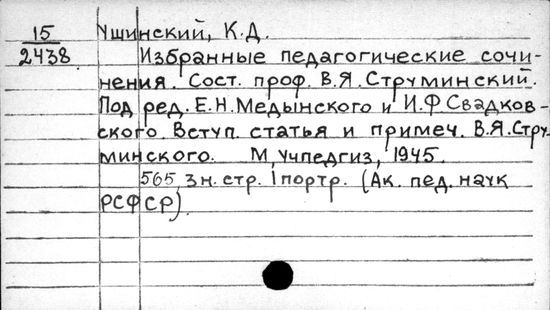 15 Ушинский, К.Д.
2438 Избранные педагогические сочи-
нения. Сост. проф. В.Я. Струминский.
Под ред. Е.Н. Медынского и И.Ф Свадков-
ского. Вступ. статья и примеч. В.Я. Стру-
минского. М, Учпедгиз, 1945.
565, 3 н. стр. 1 портр. (Ак. пед. наук
РСФСР)